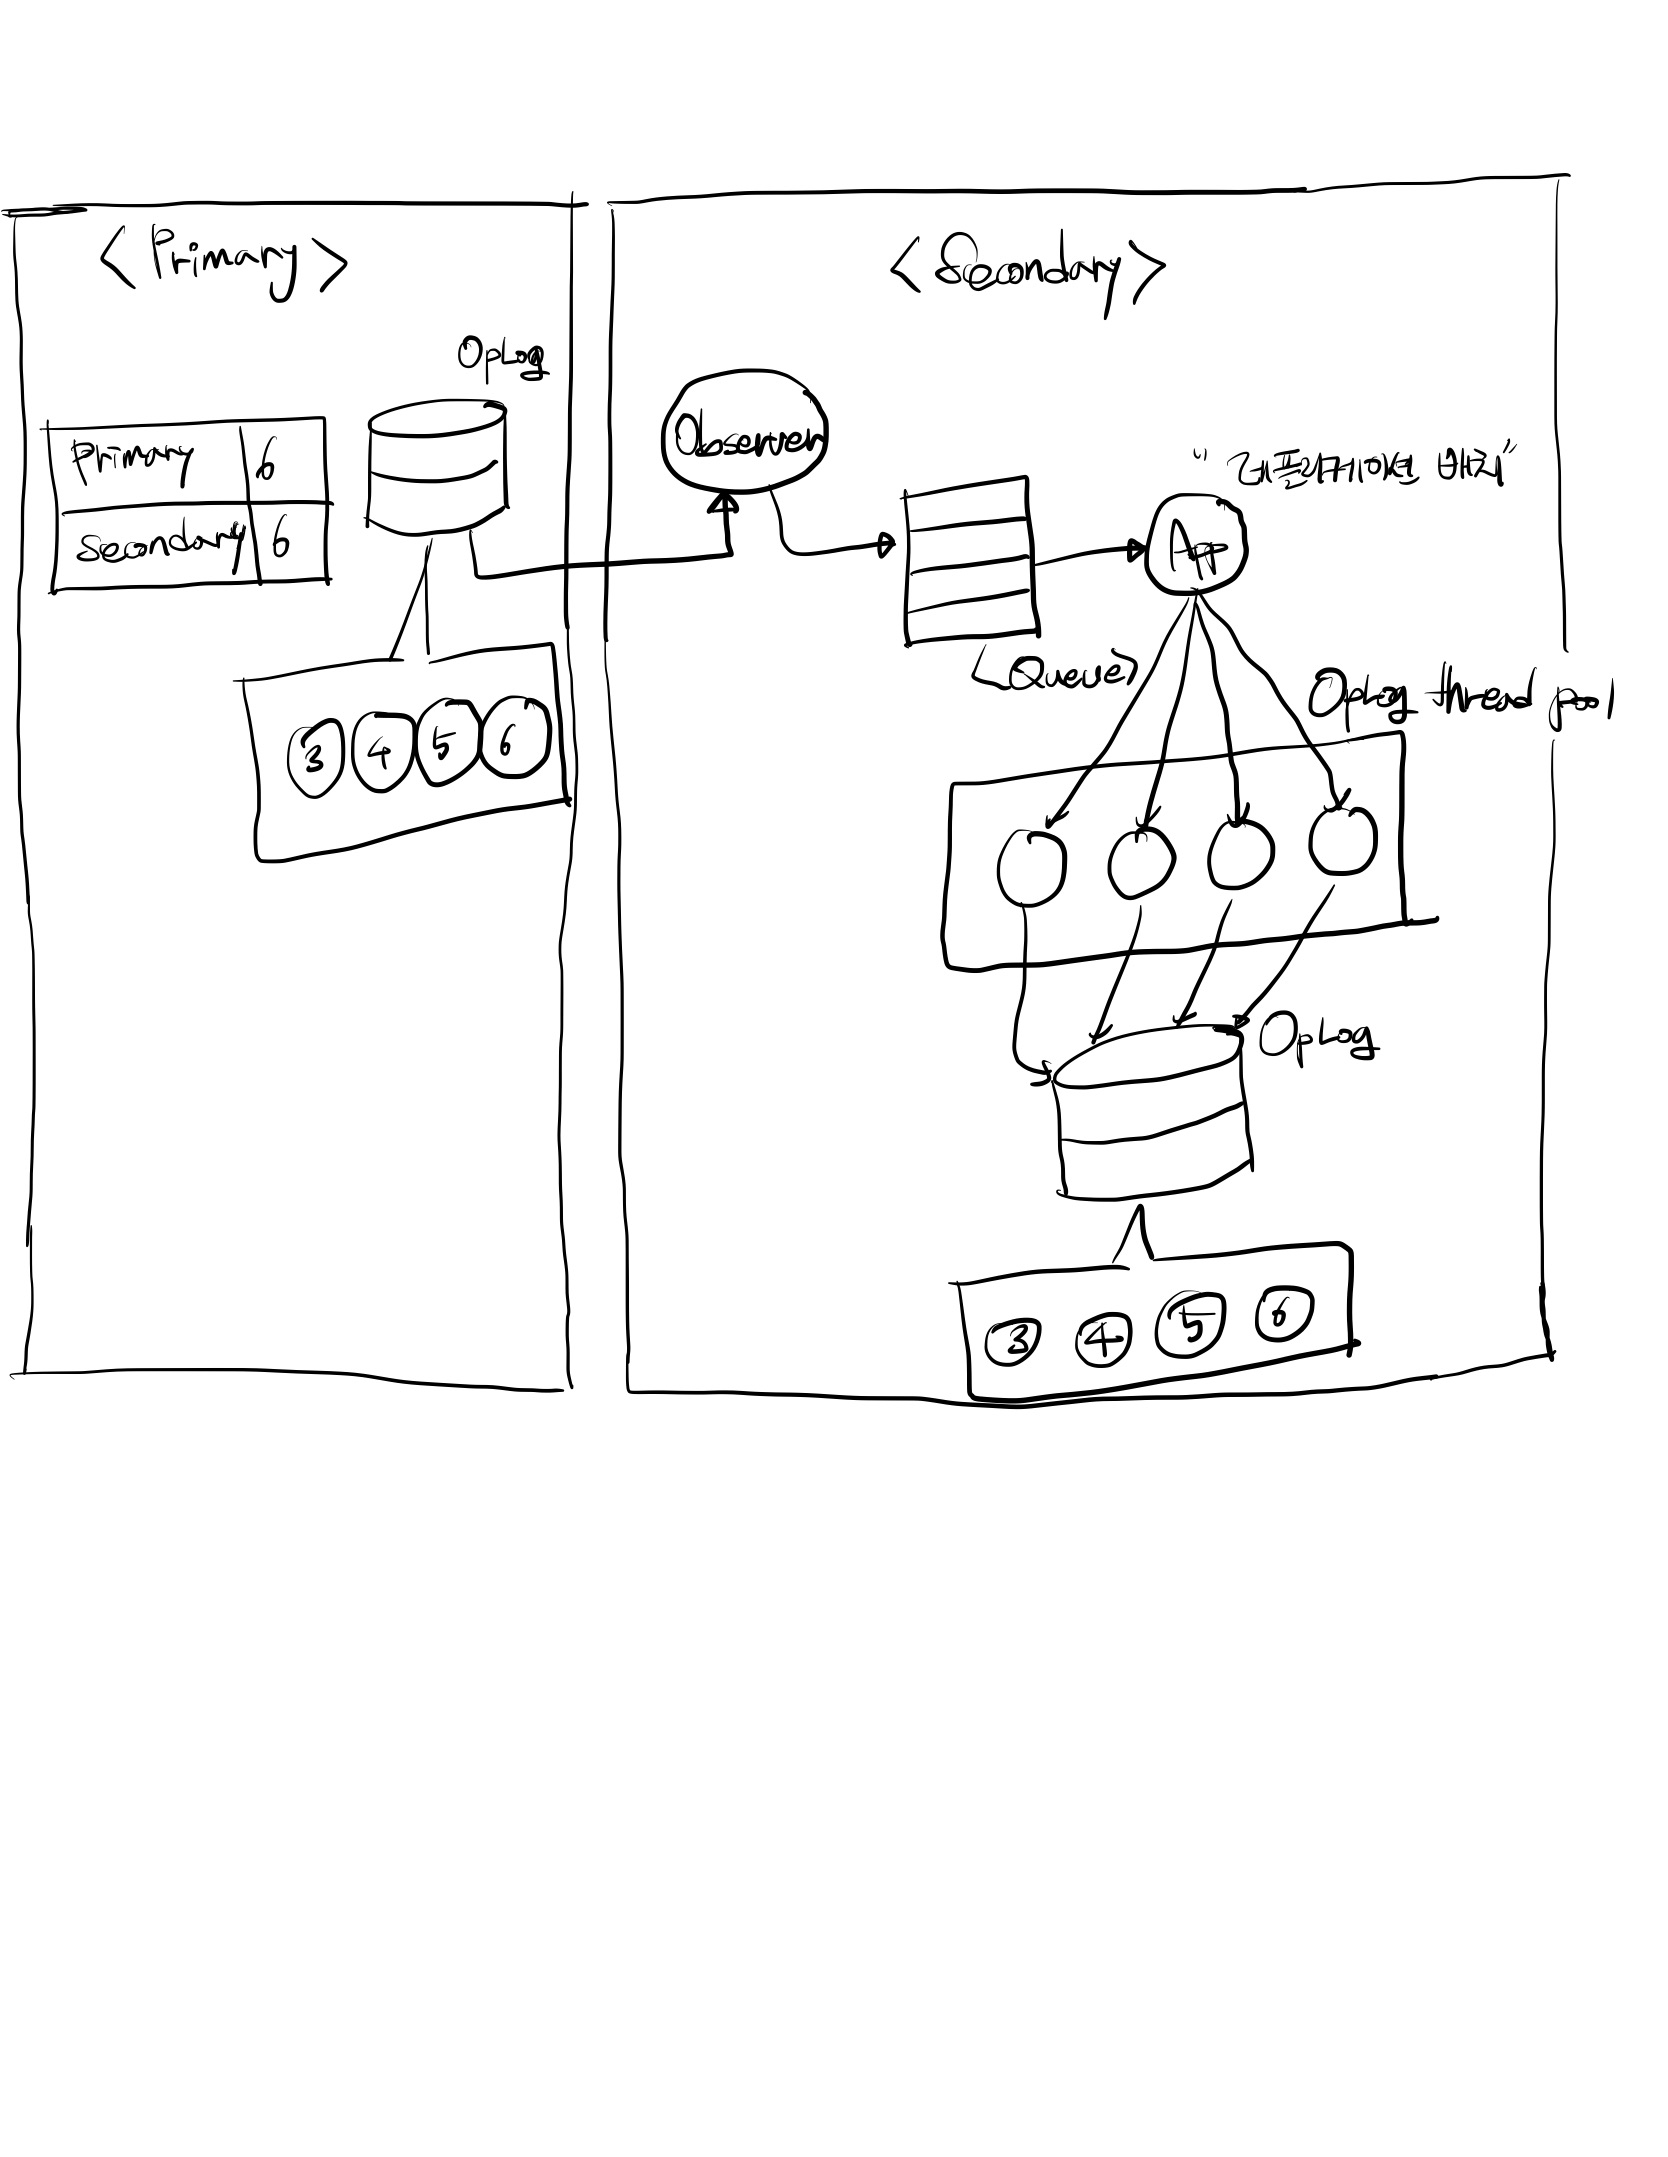 <Primary>
OpLog
Primary 6
Secondary 6
3 4 5 6
<Secondary>
Observer
"레플리케이션 배치"
App
<Queue>
OpLog thread pool
OpLog
3 4 5 6